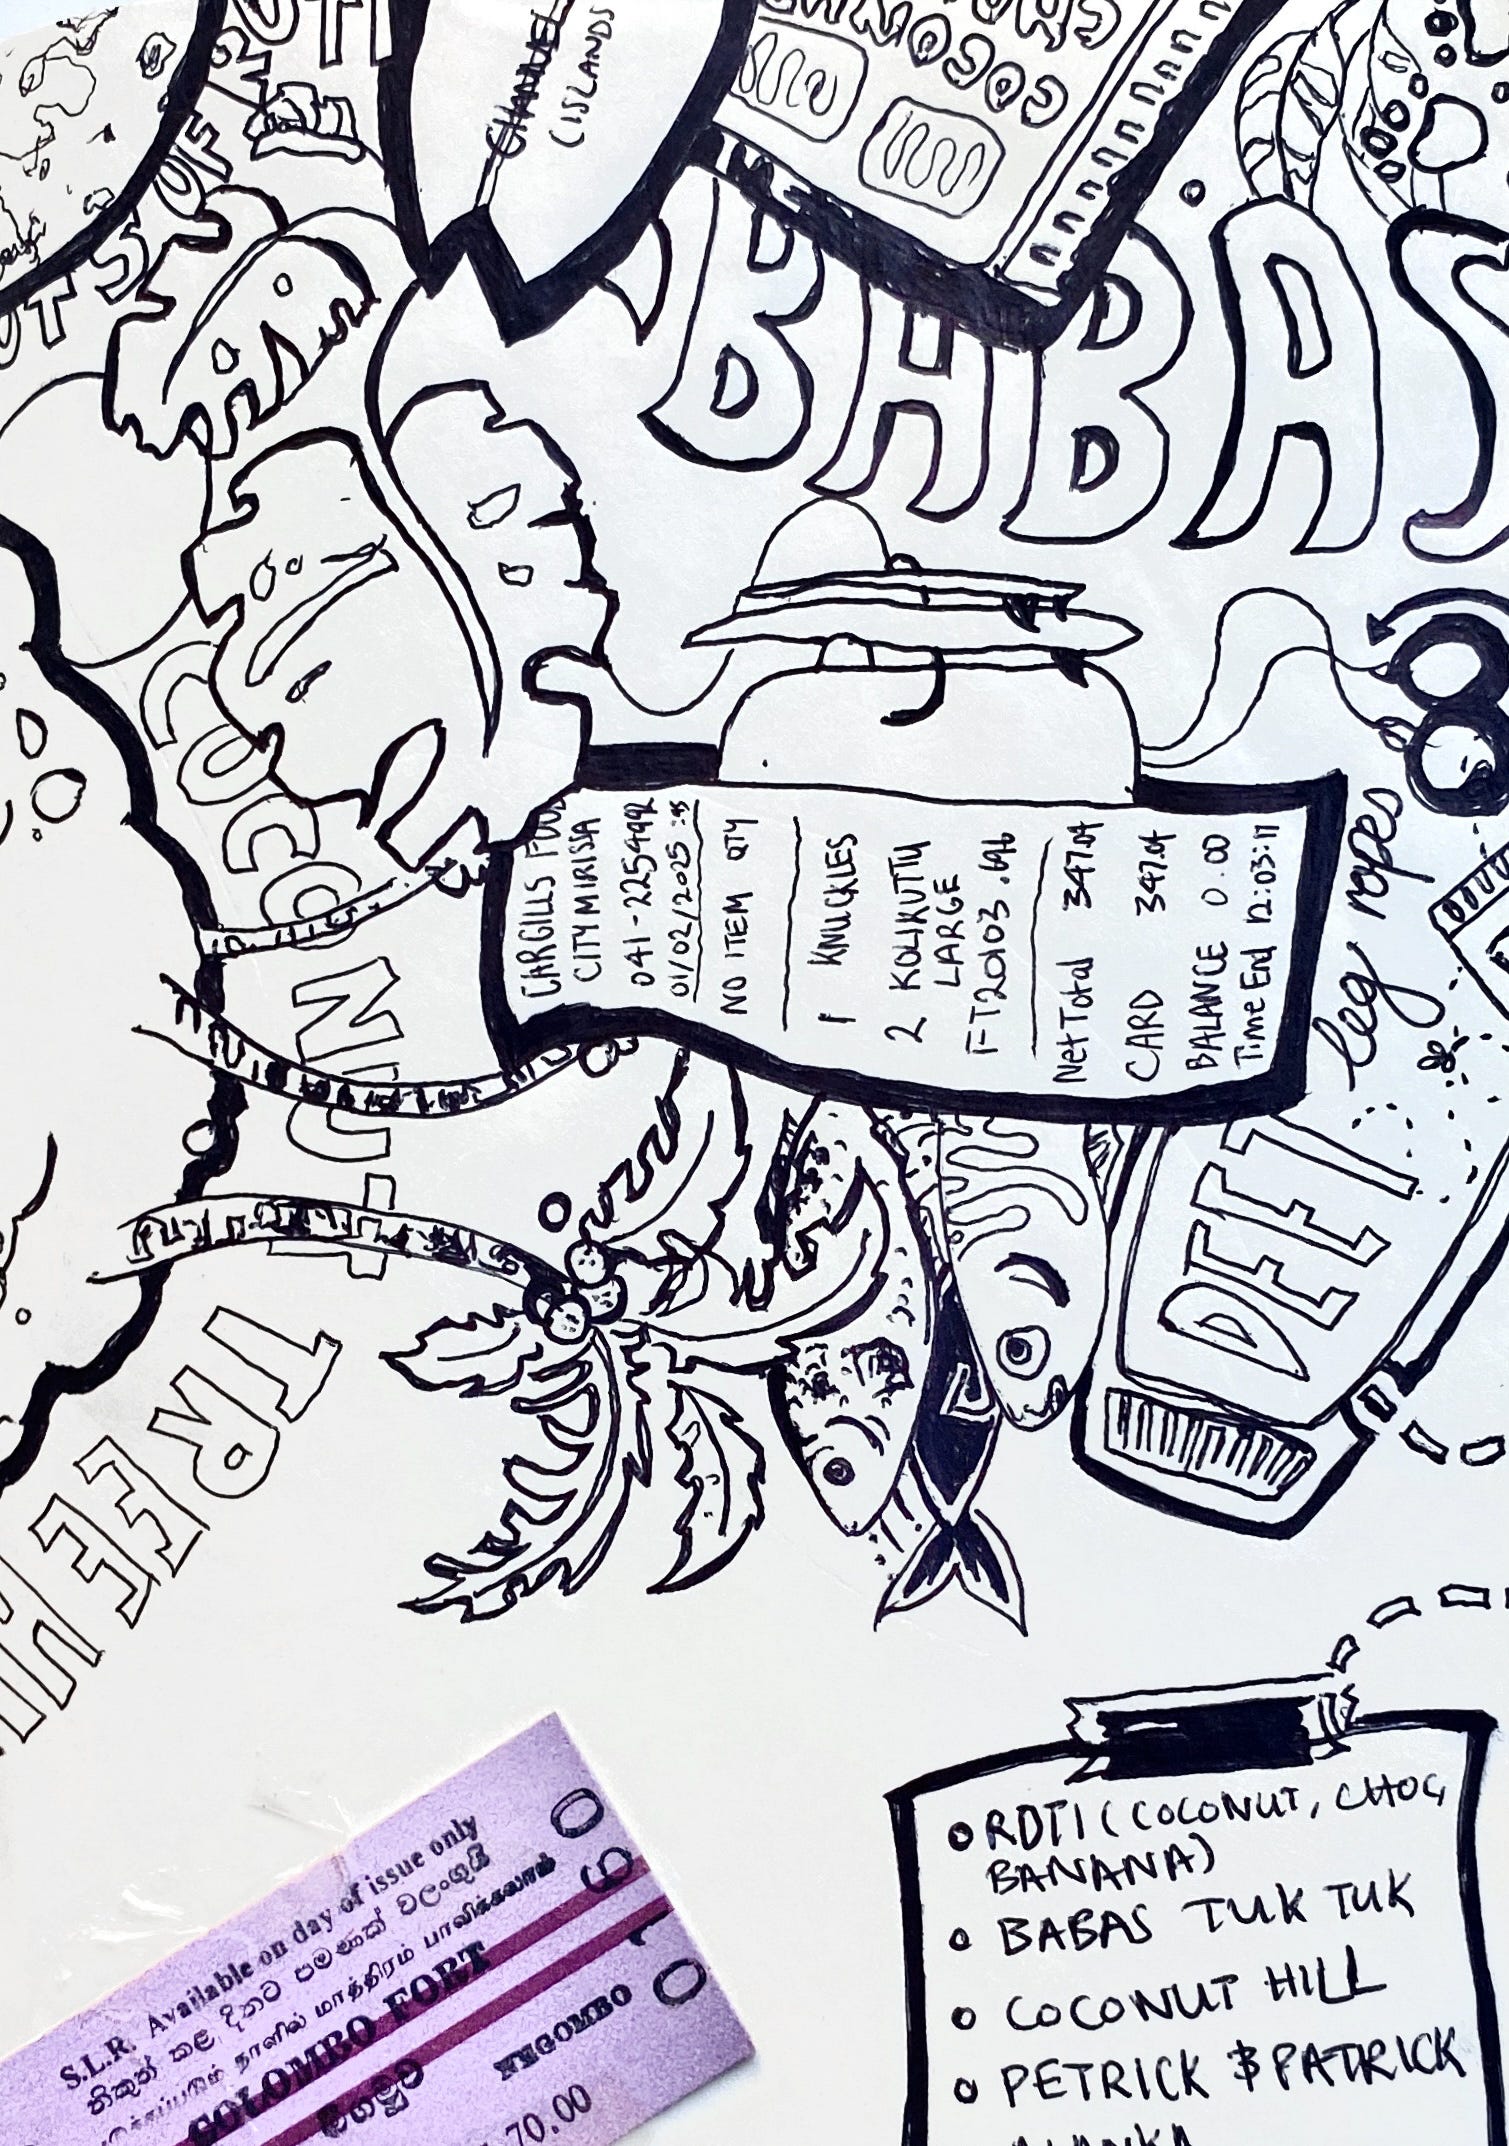 UTS OF
CHANNEL
(ISLANDS
COCOOS
BABAS
BABAS
COCONUT
TREE H
CARGILLS FOOD
CITY MIRISSA
041-2254992
01/02/2025
NO ITEM QTY
1 KNUCKLES
2 KOLIKUTTU
LARGE
FT20103.696
Net Total 347.04
CARD 347.04
BALANCE 0.00
Time End 12:03:17
leg ropes
DEET
RDTI (COCONUT, CHOC,
BANANA)
BABAS TUK TUK
COCONUT HILL
PETRICK & PATRICK
S.L.R. Available on day of issue only
නිකුත් කළ දිනට පමණක් වලංගුයි
நாளில் மாத்திரம் பாவிக்கலாம்
COLOMBO FORT
මීගමුව
NEGOMBO
70.00